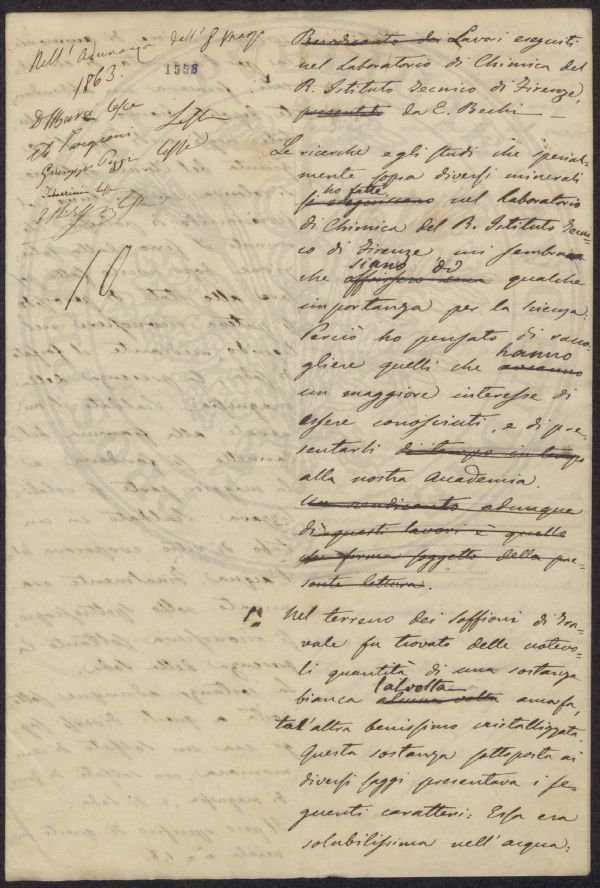 Nell' Adunanza dell' 8 Marzo
1863.
1558
Rendiconto dei Lavori eseguiti
nel Laboratorio di Chimica del
R. Istituto Tecnico di Firenze,
presentato da E. Bechi —
Le ricerche e gli studi che special-
mente sopra diversi minerali
ho fatte
si eseguiscono nel Laboratorio
di Chimica del R. Istituto Tecni-
co di Firenze mi sembra
siano di
che qualche
importanza per la scienza.
Perciò ho pensato di racco-
gliere quelli che hanno
avranno
un maggiore interesse di
essere conosciuti, e di pre-
sentarli di tempo in tempo
alla nostra Accademia.
Un rendiconto adunque
di questi lavori è quello
che forma soggetto della pre-
sente lettura.
1° Nel terreno dei soffioni di Tra-
vale fu trovato delle notevo-
li quantità di una sostanza
talvolta
bianca alcuna volta amorfa,
tal'altra benissimo cristallizzata.
Questa sostanza sottoposta ai
diversi saggi presentava i se-
guenti caratteri: Essa era
solubilissima nell'acqua: